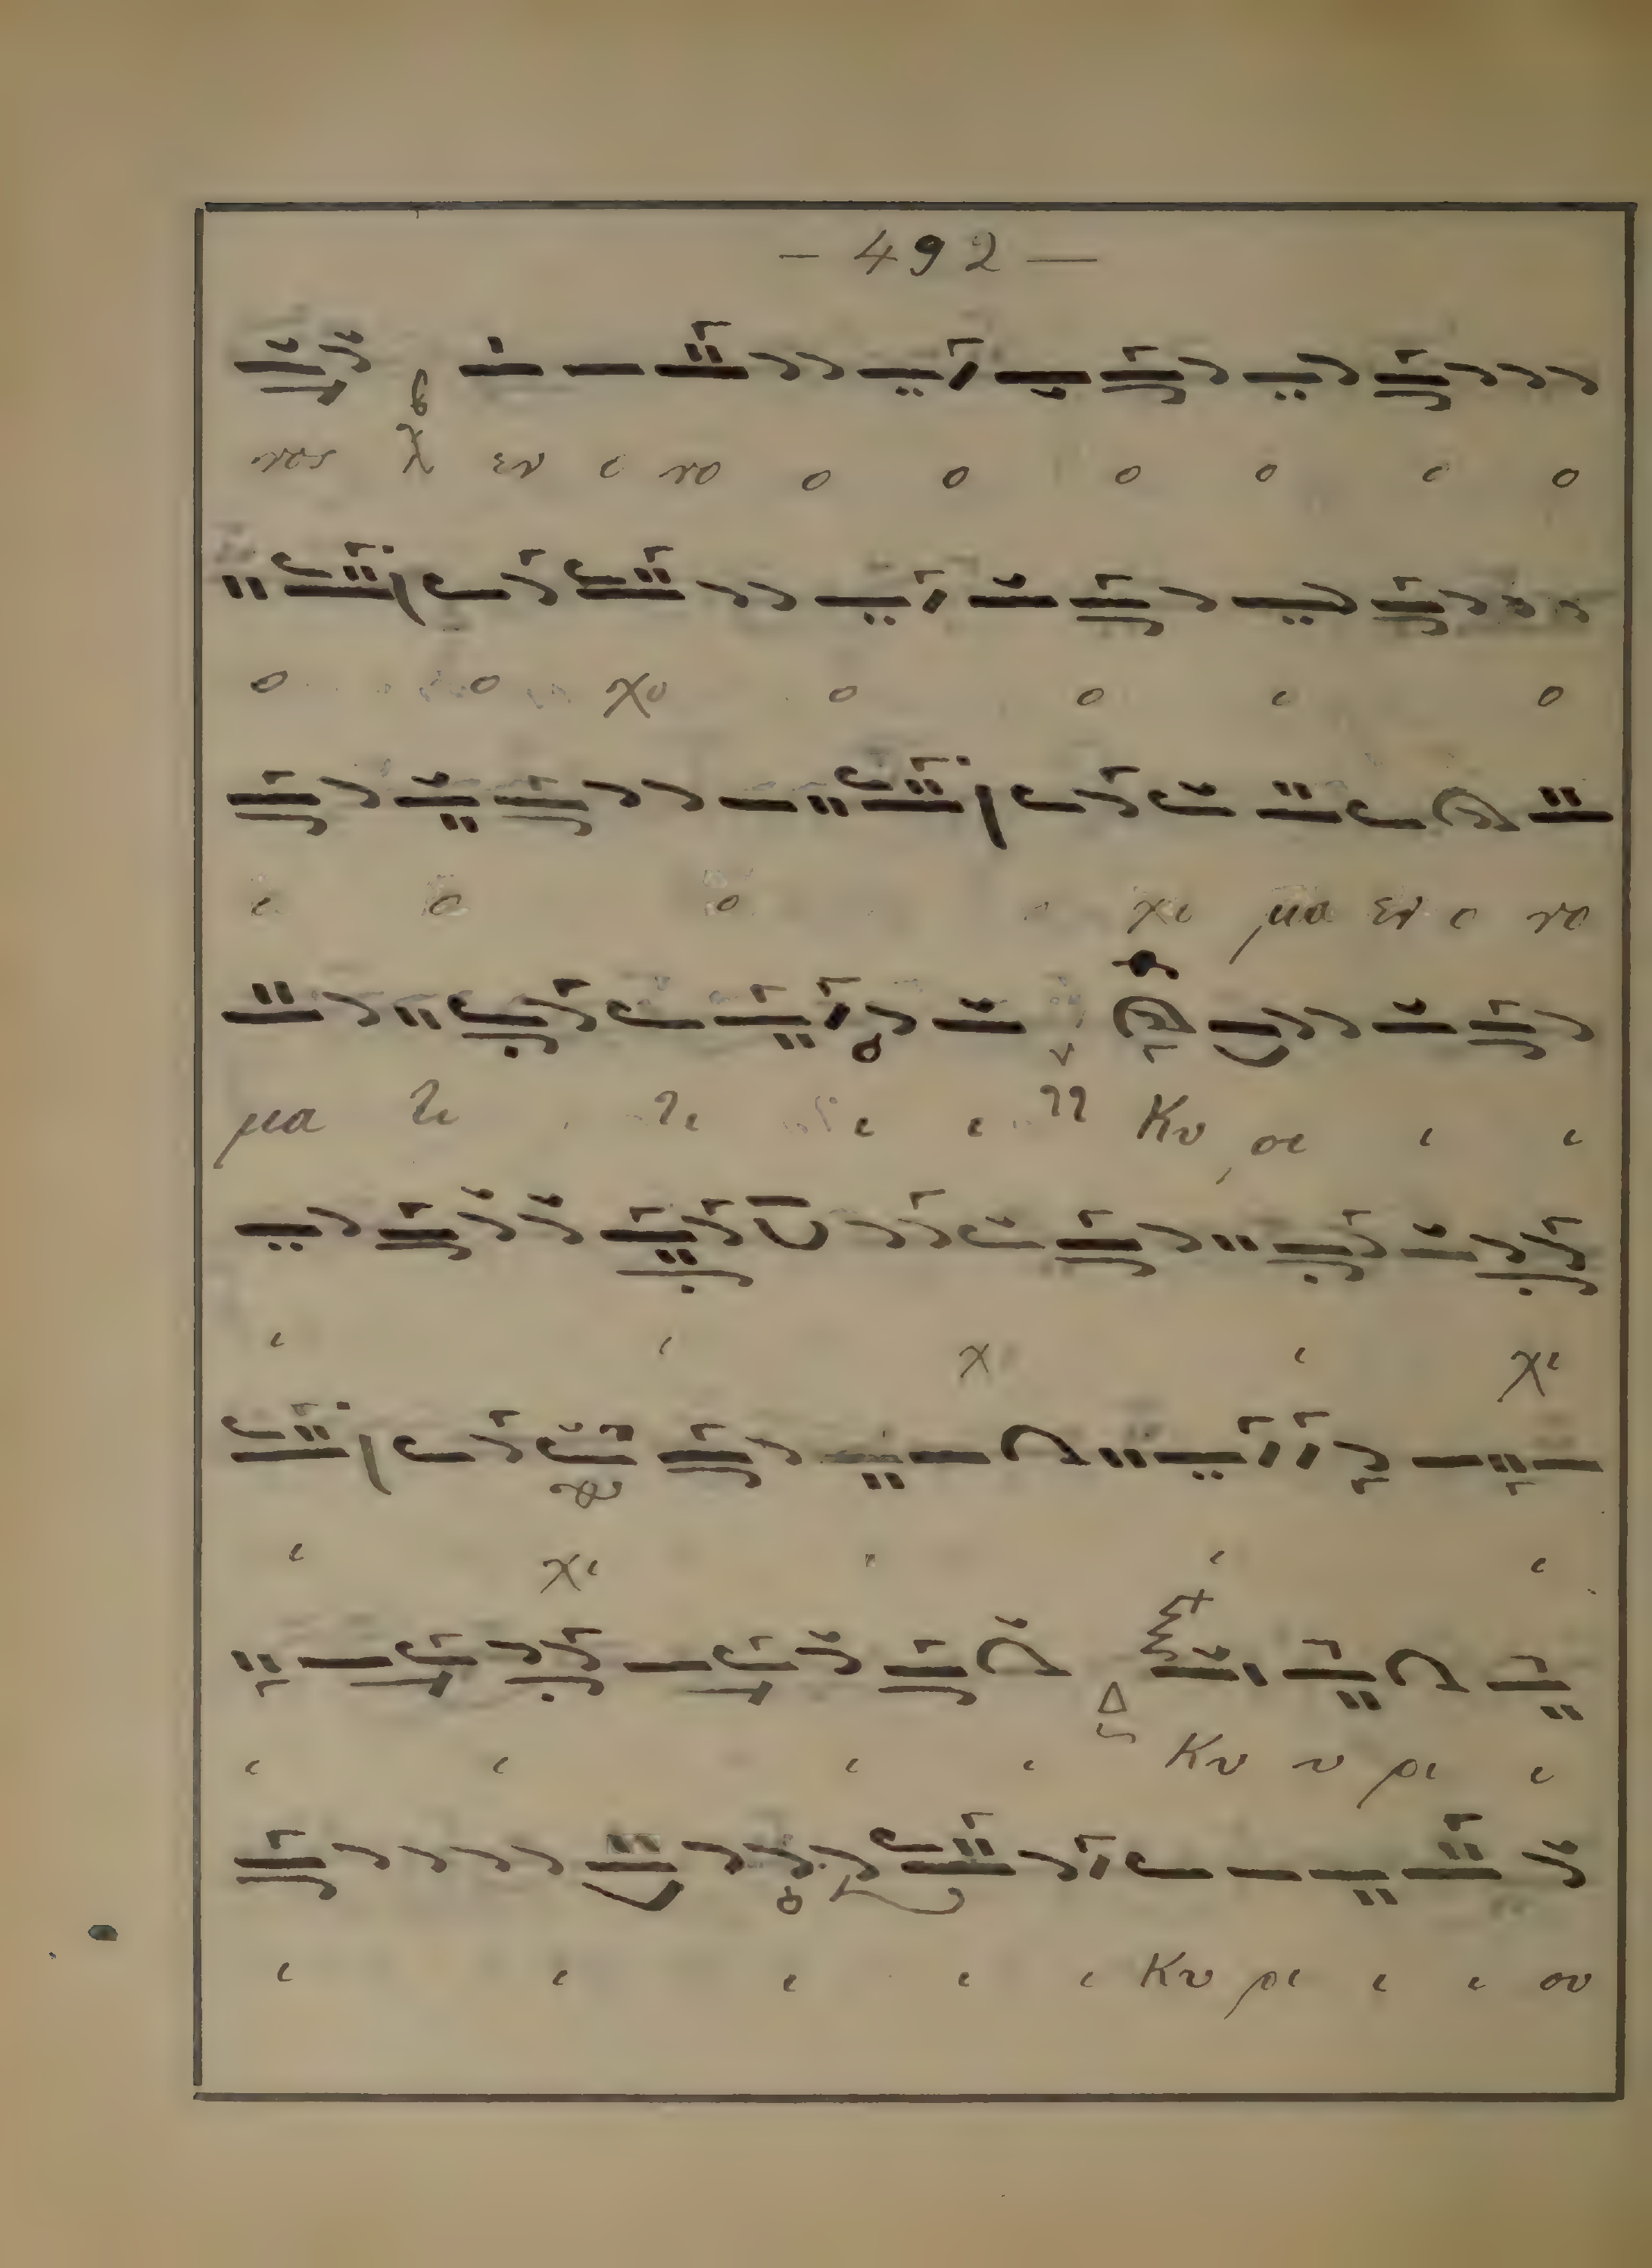 — 492 —
νος χ εν ι νο ο ο ο ο ι ο
ο ο χο ο ο ι ο
ι ο ο χι μα εν ο νο
μα τι τι ι ι Κυ ρι ι ι
ι ι χ ι χι
ι χι ι ι ι
ι ι ι ι Δ Κυ υ ρι ι
ι ι ι ι ι Κυ ρι ι ι ου